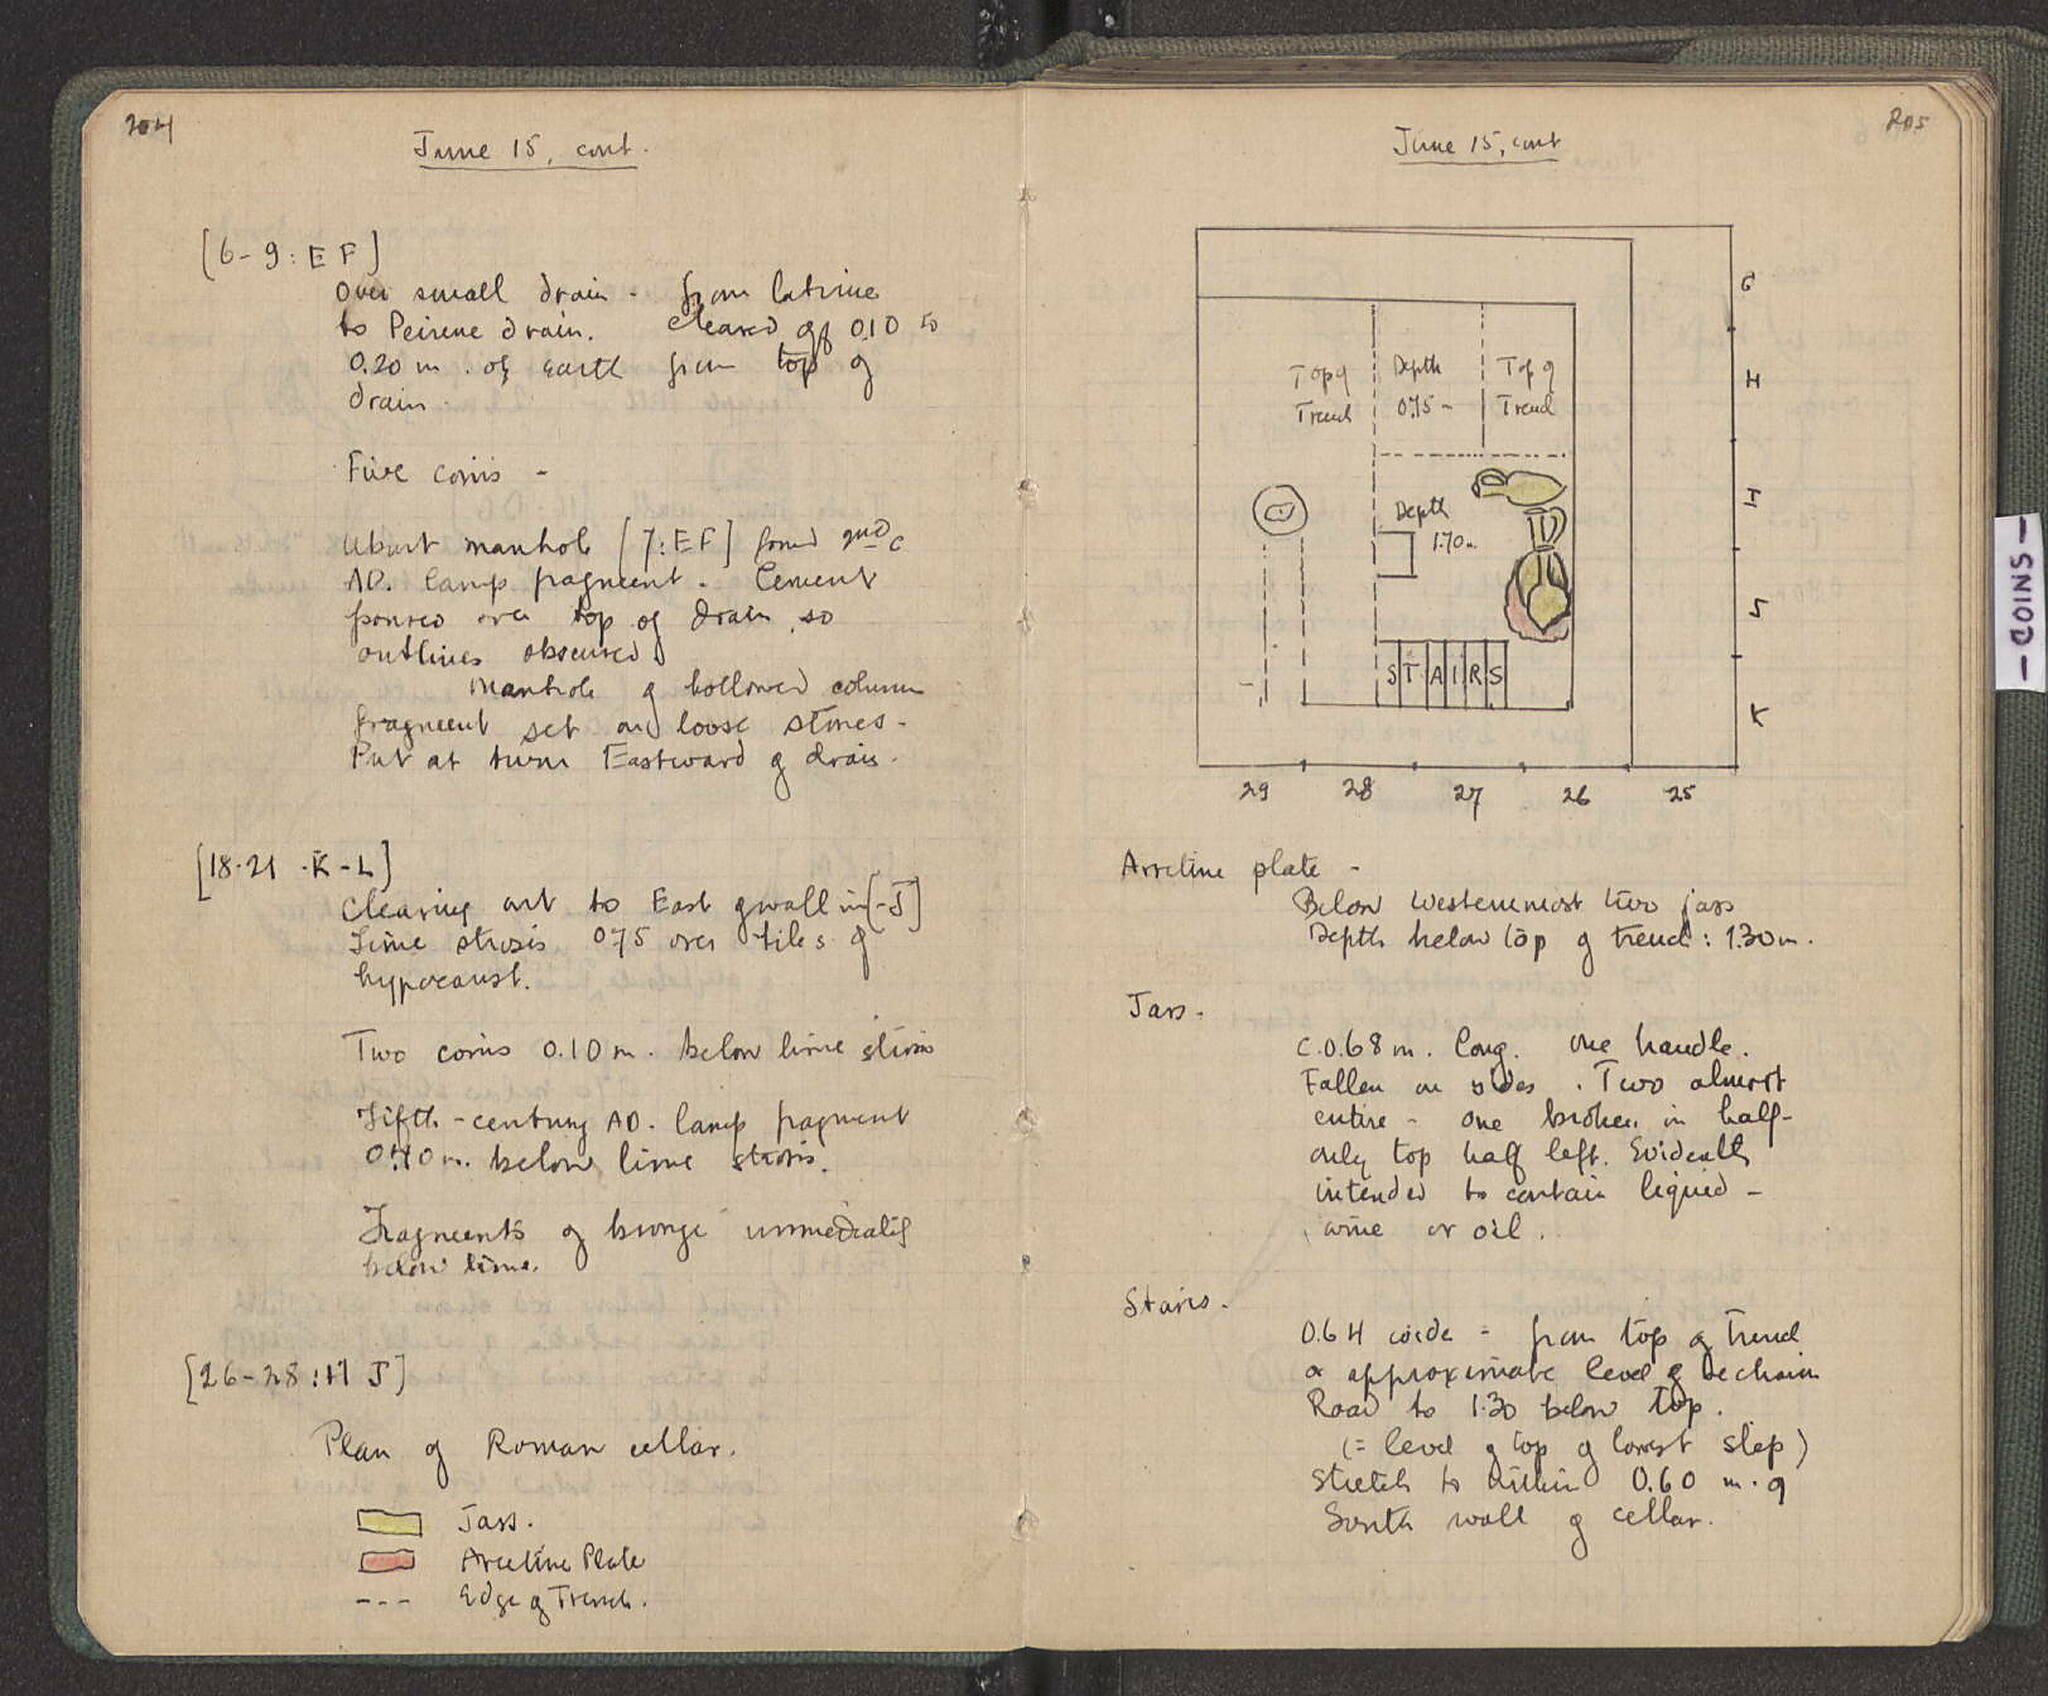 204
June 15, cont.
[6-9: E F]
Over small drain - from latrine
to Peirene drain. Cleared off 0.10 to
0.20 m. of earth from top of
drain.
Five coins -
About manhole [7: EF] found 2nd c
AD. lamp fragment. Cement
poured over top of drain, so
outlines obscured.
Manhole of hollowed column
fragment set on loose stones.
Put at turn Eastward of drain.
[18-21 · K-L]
Clearing out to East of wall in [-J]
Lime strosis 0.75 over tiles of
hypocaust.
Two coins 0.10 m. below lime strosis
Fifth-century AD. lamp fragment
0.40 m. below lime strosis.
Fragments of bronze immediately
below lime.
[26-28: H J]
Plan of Roman cellar.
Jars.
Arretine Plate
Edge of Trench.
205
June 15, cont
G
Top of Depth Top of H
Trench 0.75 - Trench
I
Depth
1.70 m.
J
STAIRS
K
29 28 27 26 25
Arretine plate -
Below westernmost two jars
Depth below top of trench: 1.30 m.
Jars.
c. 0.68 m. long. One handle.
Fallen on sides. Two almost
entire - one broken in half-
only top half left. Evidently
intended to contain liquid -
wine or oil.
Stairs.
0.64 wide - from top of trench
or approximate level of Lechaion
Road to 1.30 below top.
(= level of top of lowest step)
Stretch to within 0.60 m. of
South wall of cellar.
- COINS -